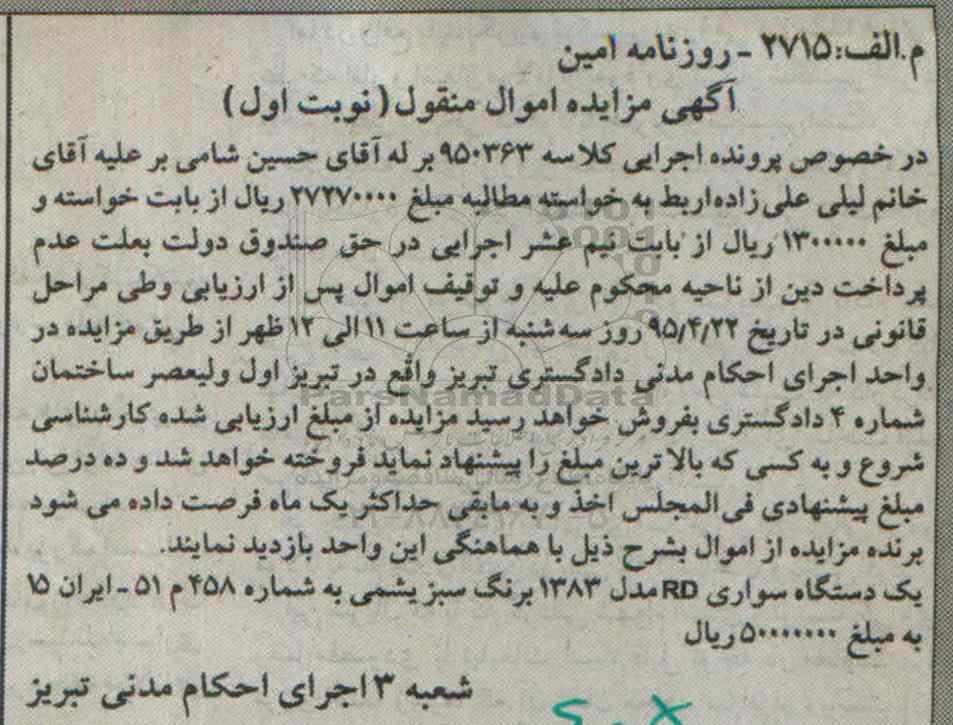 م.الف: ۲۷۱۵ - روزنامه امین
آگهی مزایده اموال منقول (نوبت اول)
در خصوص پرونده اجرایی کلاسه ۹۵۰۳۶۳ بر له آقای حسین شامی بر علیه آقای
خانم لیلی علی زاده اربط به خواسته مطالبه مبلغ ۲۷۲۷۰۰۰۰ ریال از بابت خواسته و
مبلغ ۱۳۰۰۰۰۰ ریال از بابت نیم عشر اجرایی در حق صندوق دولت بعلت عدم
پرداخت دین از ناحیه محکوم علیه و توقیف اموال پس از ارزیابی وطی مراحل
قانونی در تاریخ ۹۵/۴/۲۲ روز سه شنبه از ساعت ۱۱ الی ۱۲ ظهر از طریق مزایده در
واحد اجرای احکام مدنی دادگستری تبریز واقع در تبریز اول ولیعصر ساختمان
ParsNamadData
شماره ۴ دادگستری بفروش خواهد رسید مزایده از مبلغ ارزیابی شده کارشناسی
شروع و به کسی که بالا ترین مبلغ را پیشنهاد نماید فروخته خواهد شد و ده درصد
مبلغ پیشنهادی فی المجلس اخذ و به مابقی حداکثر یک ماه فرصت داده می شود
برنده مزایده از اموال بشرح ذیل با هماهنگی این واحد بازدید نمایند.
یک دستگاه سواری RD مدل ۱۳۸۳ برنگ سبز یشمی به شماره ۴۵۸ م ۵۱ - ایران ۱۵
به مبلغ ۵۰۰۰۰۰۰۰ ریال
شعبه ۳ اجرای احکام مدنی تبریز